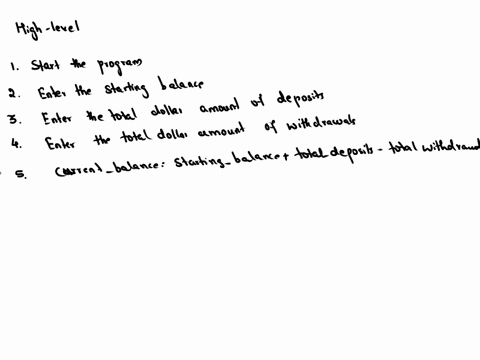 High-level
1. Start the program
2. Enter the starting balance
3. Enter the total dollar amount of deposits
4. Enter the total dollar amount of withdrawals
5. Current_balance: Starting_balance + total deposits - total withdrawal